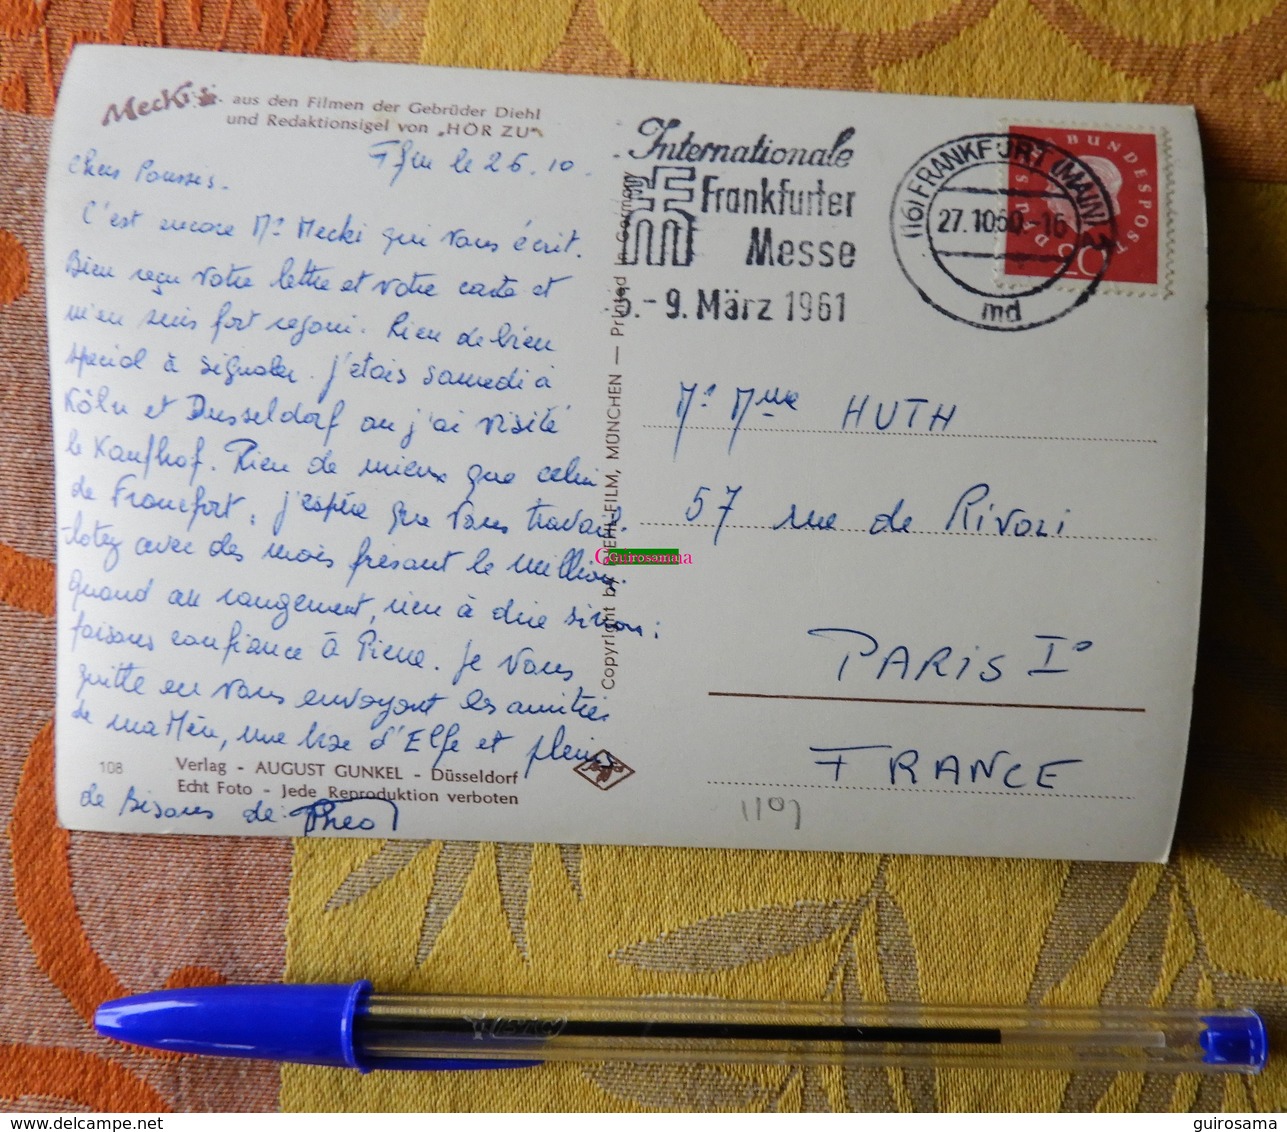 Mecki
aus den Filmen der Gebrüder Diehl
und Redaktionsigel von „HÖR ZU"
Ffm le 26.10.
Chers Pousses.
C'est encore Mr Mecki qui vous écrit.
Bien reçu votre lettre et votre carte et
m'en suis fort rejoui. Rien de bien
special à signaler. J'étais samedi à
Köln et Dusseldorf ou j'ai visité
le Kaufhof. Rien de mieux que celui
de Francfort. J'espère que vous travail-
lotez avec des mois frisant le million.
Quand au rangement, rien à dire sinon:
faisons confiance à Pierre. Je vous
quitte en vous envoyant les amitiés
de ma Mère, une bise d'Elfe et pleins
de Bisous de: Theo
108
Verlag - AUGUST GUNKEL - Düsseldorf
Echt Foto - Jede Reproduktion verboten
Copyright by DIEHL-FILM, MÜNCHEN — Printed in Germany
Guirosama
Internationale
Frankfurter
Messe
5.-9. März 1961
(16) FRANKFURT (MAIN) 2
27.10.60.-16
md
BUNDESPOST
20
Mr Mme HUTH
57 rue de Rivoli
PARIS I°
FRANCE
guirosama